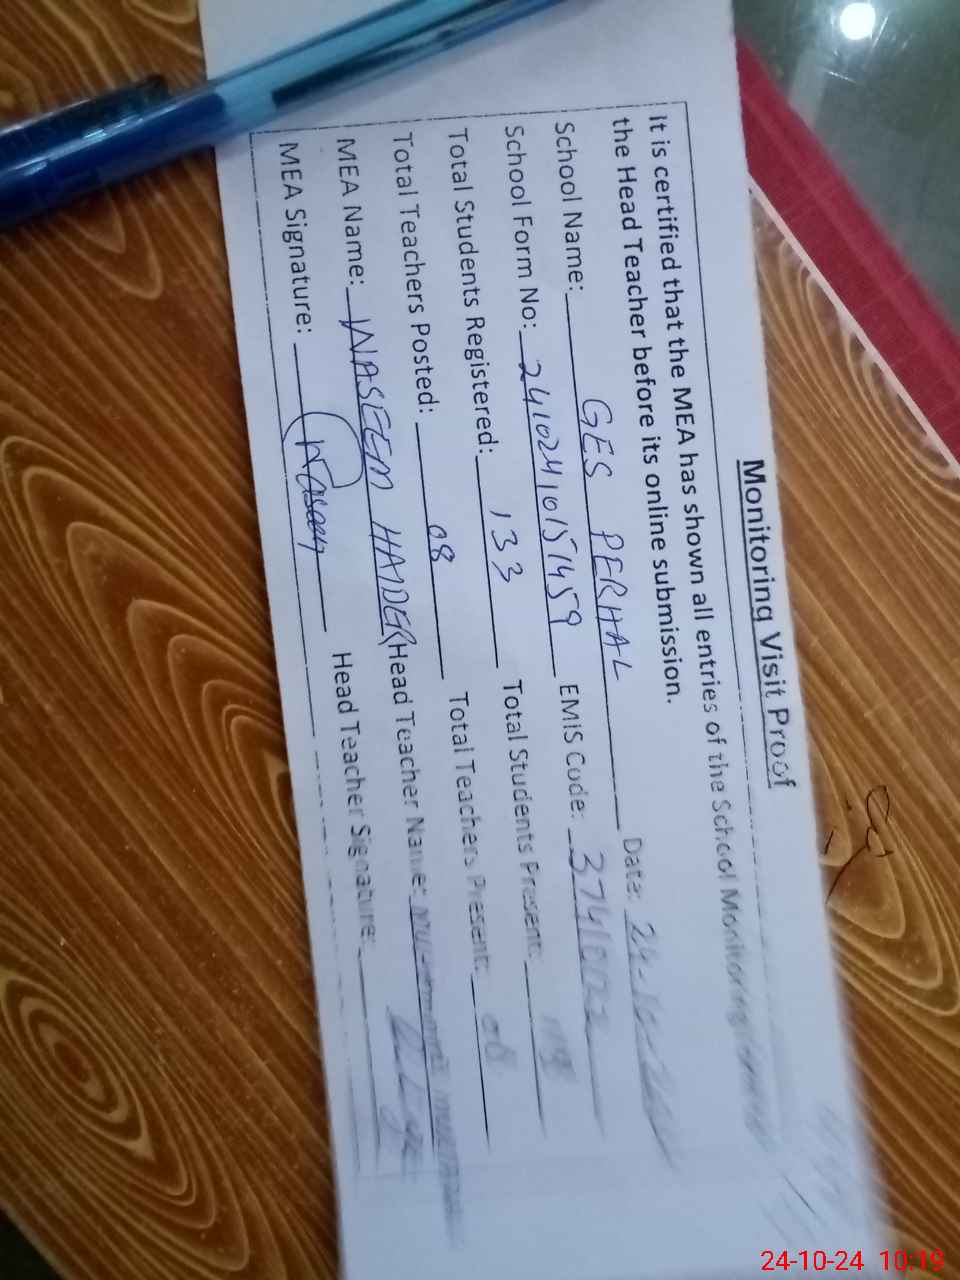 Monitoring Visit Proof
It is certified that the MEA has shown all entries of the School Monitoring
the Head Teacher before its online submission.
School Name: GES PERHAL Date: 24-10-
School Form No: 24102410151459 EMIS Code:
Total Students Registered: 133 Total Students Present:
Total Teachers Posted: 08 Total Teachers Present: 08
MEA Name: WASEEM HAIDER Head Teacher Name:
MEA Signature: Waseem Head Teacher Signature:
24-10-24 10:19